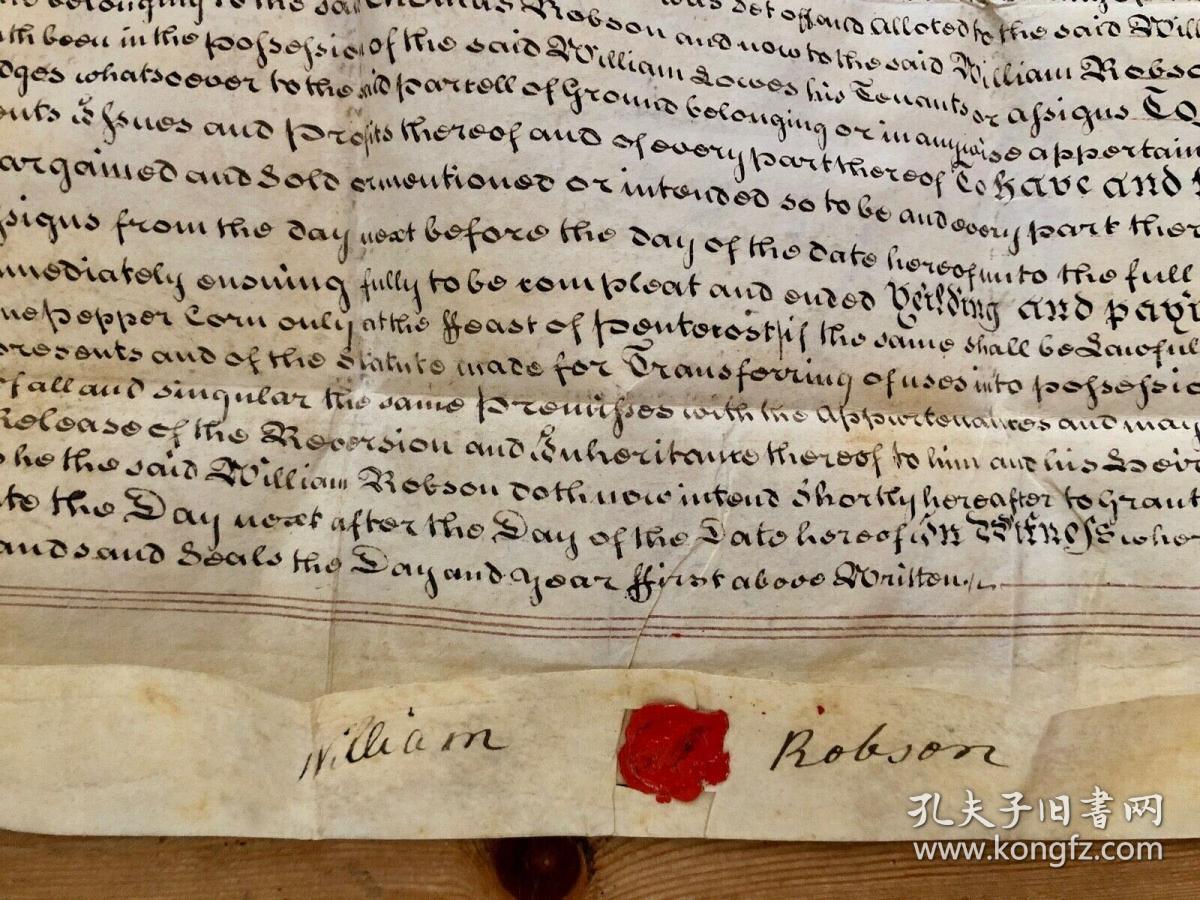 belonging to the said Thomas Robson was set off and Alloted to the said Will
ath been in the Possession of the said William Lowes his Tenants or assigns and now to the said William Robso
dges whatsoever to the said Parcell of Ground belonging or in anywise appertain
ents Issues and Profits thereof and of every part thereof To have and t
argained and Sold or mentioned or intended so to be and every part ther
ssigns from the day next before the day of the date hereof unto the full
mmediately ensuing fully to be compleat and ended Yeilding and payi
ne Pepper Corn only at the ffeast of Pentecost if the same shall be Lawfull
presents and of the Statute made for Transferring of uses into possessio
f all and singular the same Premisses with the Appurtenances and may
Release of the Reversion and Inheritance thereof to him and his Heir
he the said William Robson doth now intend Shortly hereafter to Grant
te the Day next after the Day of the Date hereof In Witness wher
ands and Seals the Day and year ffirst above Written
William Robson
孔夫子旧书网
www.kongfz.com